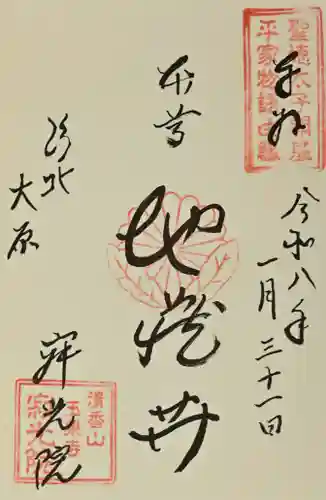 奉拝
聖徳太子開基
平家物語史蹟
令和八年
一月三十一日
本尊
地蔵尊
洛北
大原
寂光院
清香山
玉泉寺
寂光院